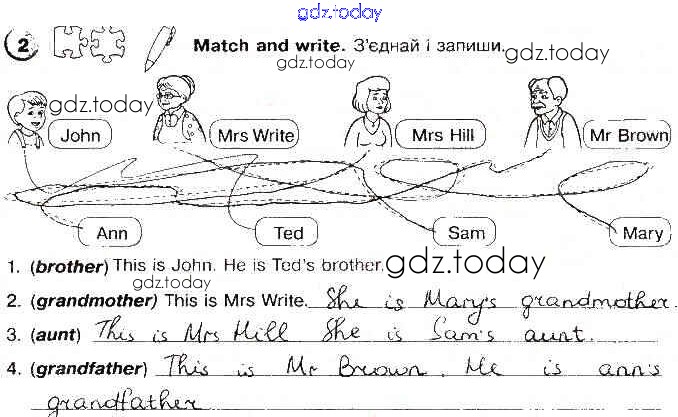 gdz.today
2 Match and write. З'єднай і запиши. gdz.today
gdz.today
gdz.today
John Mrs Write Mrs Hill Mr Brown
Ann Ted Sam Mary
1. (brother) This is John. He is Ted's brother. gdz.today
gdz.today
2. (grandmother) This is Mrs Write. She is Mary's grandmother.
3. (aunt) This is Mrs Hill She is Sam's aunt.
4. (grandfather) This is Mr Brown. He is ann's
grandfather